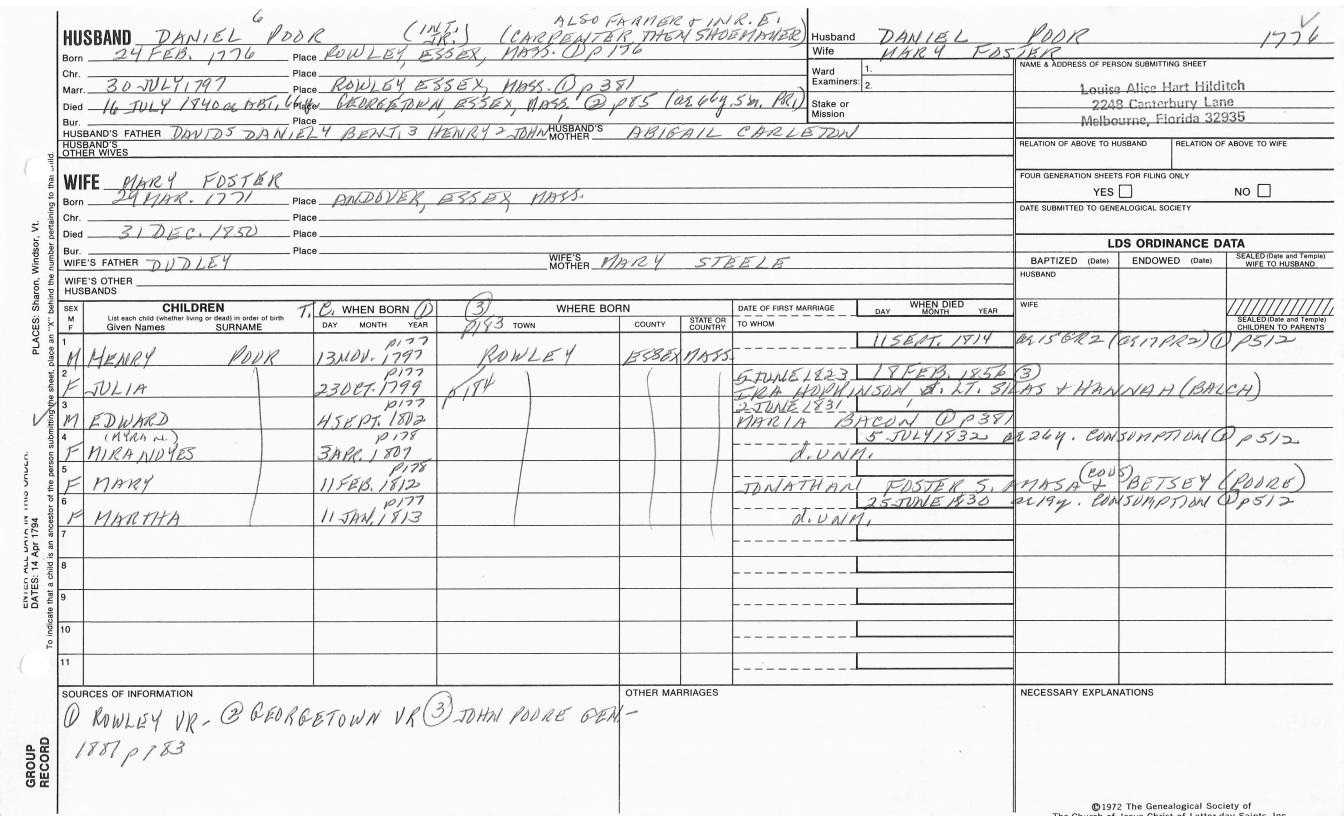 6
HUSBAND DANIEL POOR (INT. JR.) ALSO FARMER & IN R.E. (CARPENTER THEN SHOEMAKER)
Born 24 FEB. 1776 Place ROWLEY, ESSEX, MASS. ① p 176
Chr. Place
Marr. 30 JULY, 1797 Place ROWLEY ESSEX, MASS. ① p 381
Died 16 JULY 1840 GEORGETOWN, ESSEX, MASS. ② p85 (ae 66y. 5m. PR1)
Bur. Place
HUSBAND'S FATHER DAVID5 DANIEL4 BENJ.3 HENRY2 JOHN HUSBAND'S MOTHER ABIGAIL CARLETON
HUSBAND'S OTHER WIVES
Husband DANIEL POOR 1776
Wife MARY FOSTER
Ward Examiners: 1.
2.
Stake or Mission
NAME & ADDRESS OF PERSON SUBMITTING SHEET
Louise Alice Hart Hilditch
2248 Canterbury Lane
Melbourne, Florida 32935
RELATION OF ABOVE TO HUSBAND RELATION OF ABOVE TO WIFE
FOUR GENERATION SHEETS FOR FILING ONLY
YES NO
DATE SUBMITTED TO GENEALOGICAL SOCIETY
WIFE MARY FOSTER
Born 29 MAR. 1771 Place ANDOVER, ESSEX, MASS.
Chr. Place
Died 31 DEC. 1850 Place
Bur. Place
WIFE'S FATHER DUDLEY WIFE'S MOTHER MARY STEELE
WIFE'S OTHER HUSBANDS
LDS ORDINANCE DATA
BAPTIZED (Date) ENDOWED (Date) SEALED (Date and Temple) WIFE TO HUSBAND
HUSBAND
WIFE
SEALED (Date and Temple) CHILDREN TO PARENTS
SEX M F CHILDREN T.C. WHEN BORN ① ③ WHERE BORN DATE OF FIRST MARRIAGE WHEN DIED
List each child (whether living or dead) in order of birth
Given Names SURNAME DAY MONTH YEAR p183 TOWN COUNTY STATE OR COUNTRY TO WHOM DAY MONTH YEAR
1 p177 11 SEPT. 1814 ae 15 GR2 (ae 17 PR2) ① p512
M HENRY POOR 13 NOV. 1797 ROWLEY ESSEX MASS.
2 p177 5 JUNE 1823 18 FEB. 1856 ③
F JULIA 23 OCT. 1799 p184 IRA HOPKINSON S. LT. SILAS & HANNAH (BALCH)
3 p177 2 JUNE 1831
M EDWARD 4 SEPT. 1802 MARIA BACON ① p381
4 (MYRA N.) p178 5 JULY 1832 ae 26y. CONSUMPTION ① p512
F MIRA NOYES 3 APR. 1807 d. UNM.
5 p178 (COUS)
F MARY 11 FEB. 1812 JONATHAN FOSTER S. AMASA & BETSEY (POORE)
6 p177 25 JUNE 1830 ae 19y. CONSUMPTION ① p512
F MARTHA 11 JAN. 1813 d. UNM.
7
8
9
10
11
SOURCES OF INFORMATION
① ROWLEY VR - ② GEORGETOWN VR ③ JOHN POORE GEN-
1881 p 183
OTHER MARRIAGES
NECESSARY EXPLANATIONS
©1972 The Genealogical Society of
The Church of Jesus Christ of Latter-day Saints, Inc.
GROUP RECORD
DATES: 14 Apr 1794
PLACES: Sharon, Windsor, Vt.
ENTER ALL DATA IN THIS ORDER:
To indicate that a child is an ancestor of the person submitting the sheet, place an "X" behind the number pertaining to that child.